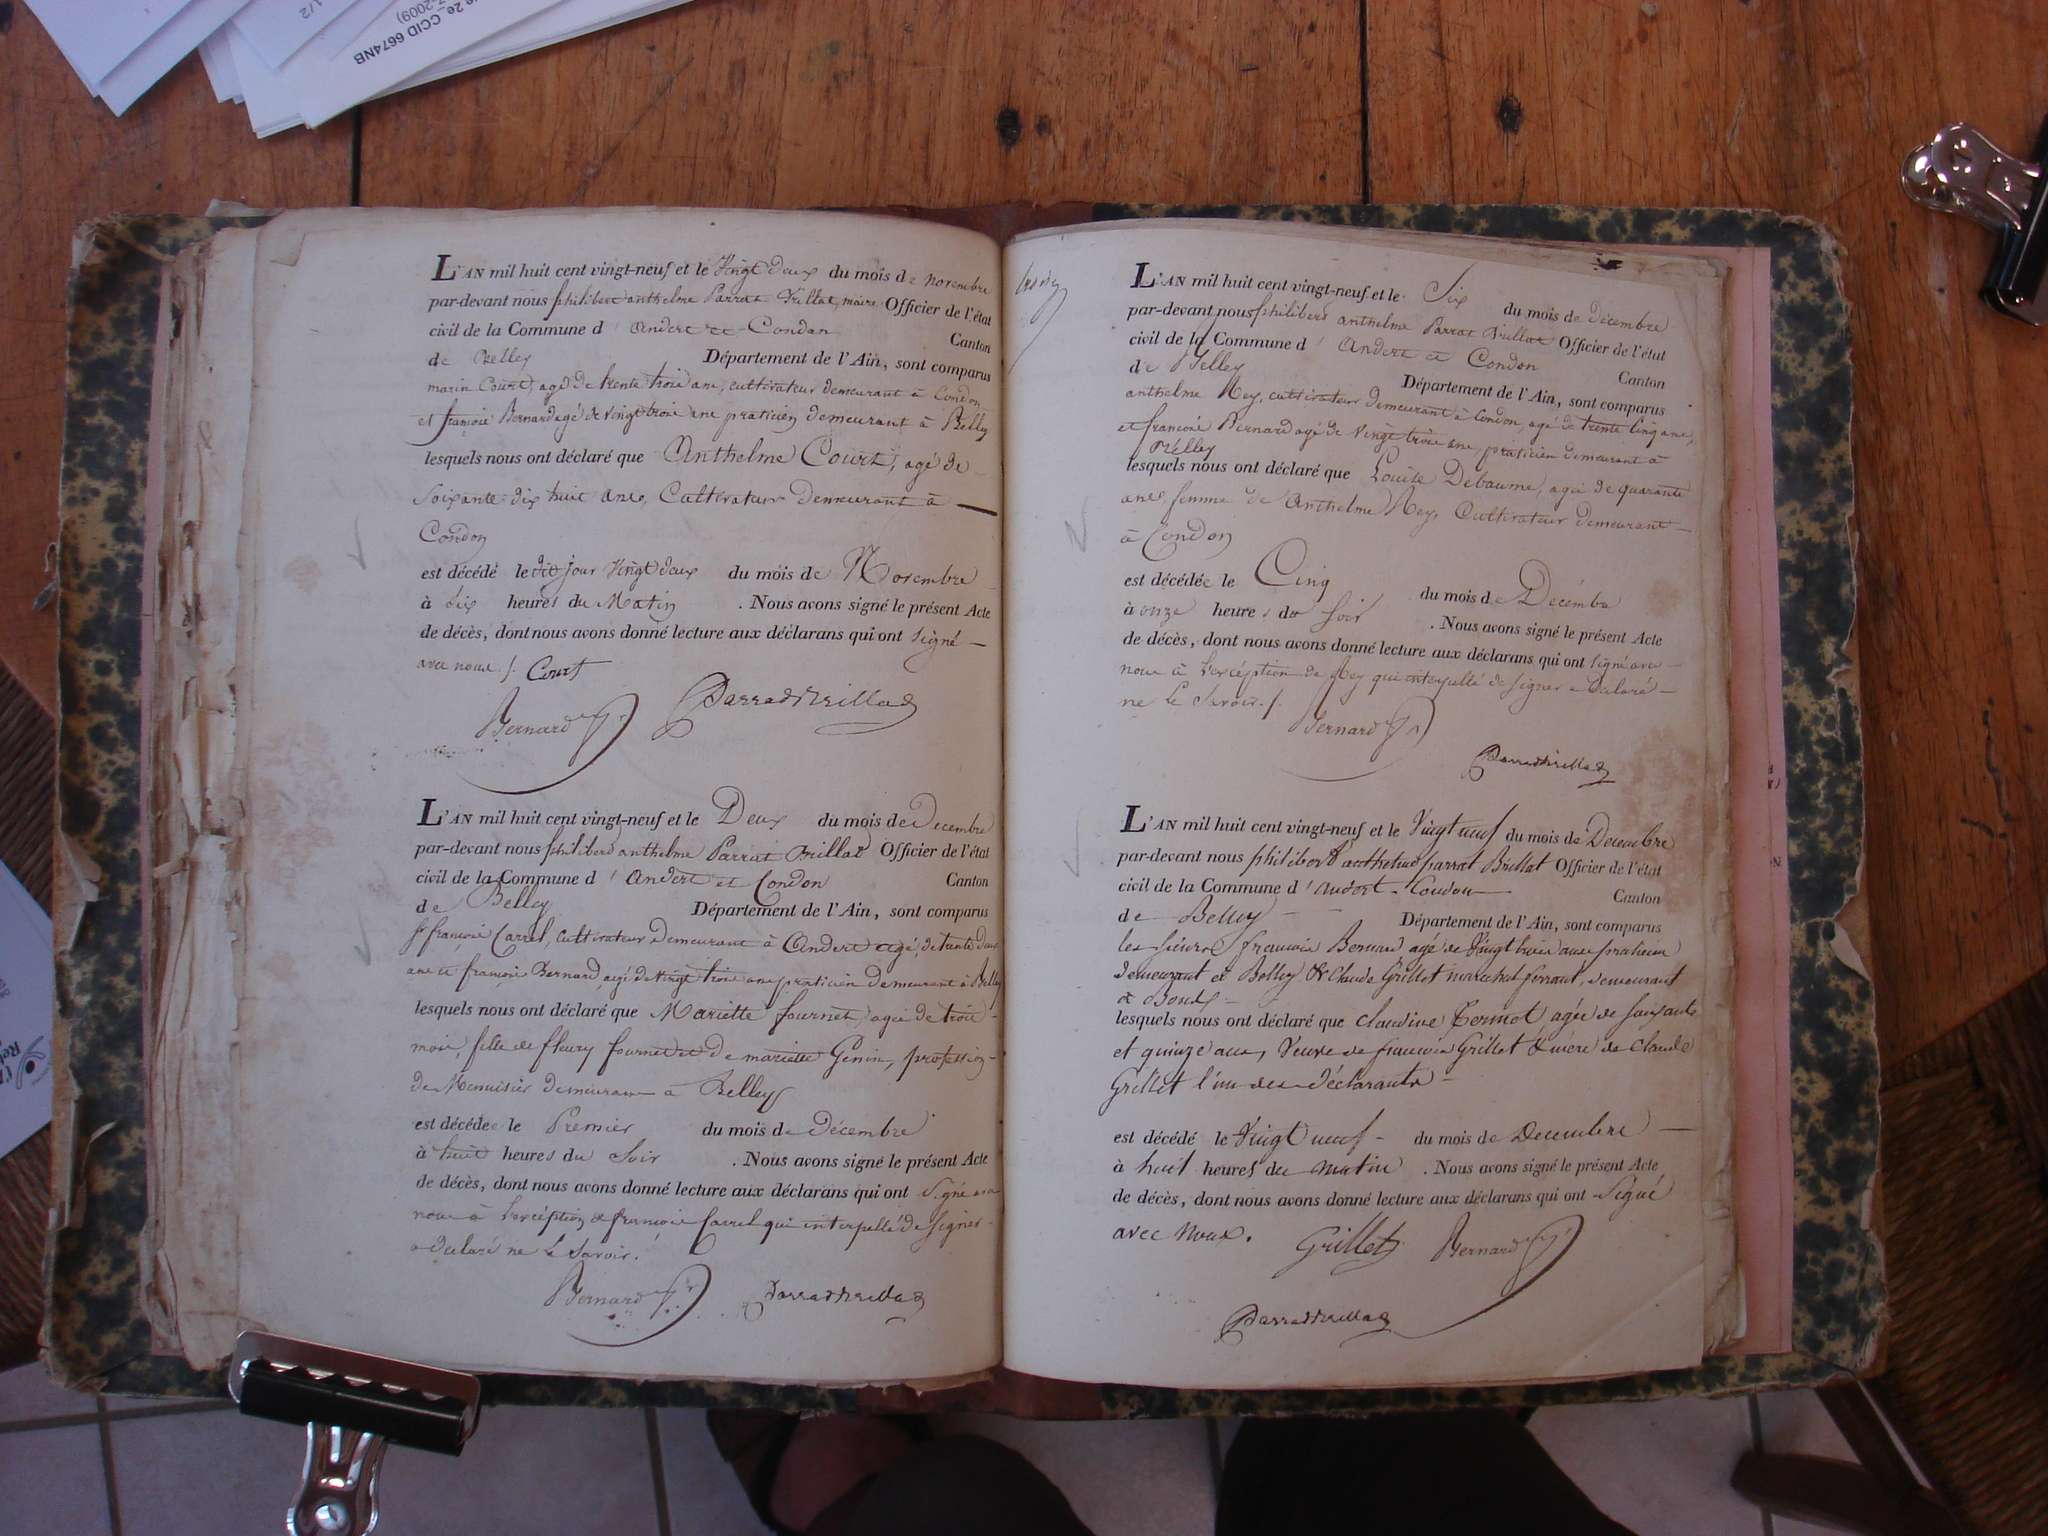 CCID 6674NB
L'AN mil huit cent vingt-neuf et le Vingt deux du mois de novembre
par-devant nous philibert anthelme Parrat Brillat, maire Officier de l'état
civil de la Commune d' andert et Condon
Canton
de Belley Département de l'Ain, sont comparus
marin Court, agé de trente trois ans, cultivateur demeurant à Condon
et françois Bernard agé de vingt trois ans praticien demeurant à Belley
lesquels nous ont déclaré que Anthelme Court, agé de
soixante dix huit ans, Cultivateur Demeurant à
Condon
est décédé le dit jour Vingt deux du mois de Novembre
à dix heures du Matin . Nous avons signé le présent Acte
de décès, dont nous avons donné lecture aux déclarans qui ont signé
avec nous ./. Court
Bernard Parrat Brillat
L'AN mil huit cent vingt-neuf et le Deux du mois de Decembre
par-devant nous philibert anthelme Parrat Brillat Officier de l'état
civil de la Commune d' andert et Condon Canton
de Belley Département de l'Ain, sont comparus
françois Carrel, cultivateur Demeurant à Andert agé, de trente deux
ans et françois Bernard, agé de vingt trois ans praticien demeurant à Belley
lesquels nous ont déclaré que Mariette fournet, agée de trois
mois, fille de fleury fournet et de mariette Genin, profession
de Menuisier demeurant à Belley
est décédée le Premier du mois de Décembre
à huit heures du Soir . Nous avons signé le présent Acte
de décès, dont nous avons donné lecture aux déclarans qui ont Signé avec
nous à l'exception de françois Carrel qui interpellé de signer
a déclaré ne le savoir.
Bernard Parrat Brillat
L'AN mil huit cent vingt-neuf et le Six du mois de décembre
par-devant nous philibert anthelme Parrat Brillat Officier de l'état
civil de la Commune d' andert et Condon
Canton
de Belley Département de l'Ain, sont comparus
anthelme Rey, cultivateur demeurant à Condon, agé de trente cinq ans,
et françois Bernard agé de vingt trois ans, praticien demeurant à
Belley
lesquels nous ont déclaré que Louise Debaume, agée de quarante
ans, femme de Anthelme Rey, Cultivateur demeurant
à Condon
est décédée le Cinq du mois de Décembre
à onze heures du Soir . Nous avons signé le présent Acte
de décès, dont nous avons donné lecture aux déclarans qui ont signé avec
nous à l'exception de Rey qui interpellé de signer a déclaré
ne le savoir ./.
Bernard
Parrat Brillat
L'AN mil huit cent vingt-neuf et le Vingt neuf du mois de Decembre
par-devant nous philibert anthelme parrat Brillat Officier de l'état
civil de la Commune d' andert - Condon
Canton
de Belley Département de l'Ain, sont comparus
les sieurs francois Bernard agé de Vingt trois ans praticien
demeurant à Belley & Claude Grillot marechal ferrant, demeurant
à
lesquels nous ont déclaré que claudine Termot agée de soixante
et quinze ans, Veuve de francois Grillot & mère de claude
Grillet l'un des déclarants
est décédé le Vingt neuf du mois de Decembre
à huit heures du matin . Nous avons signé le présent Acte
de décès, dont nous avons donné lecture aux déclarans qui ont Signé
avec nous. Grillet Bernard
Parrat Brillat